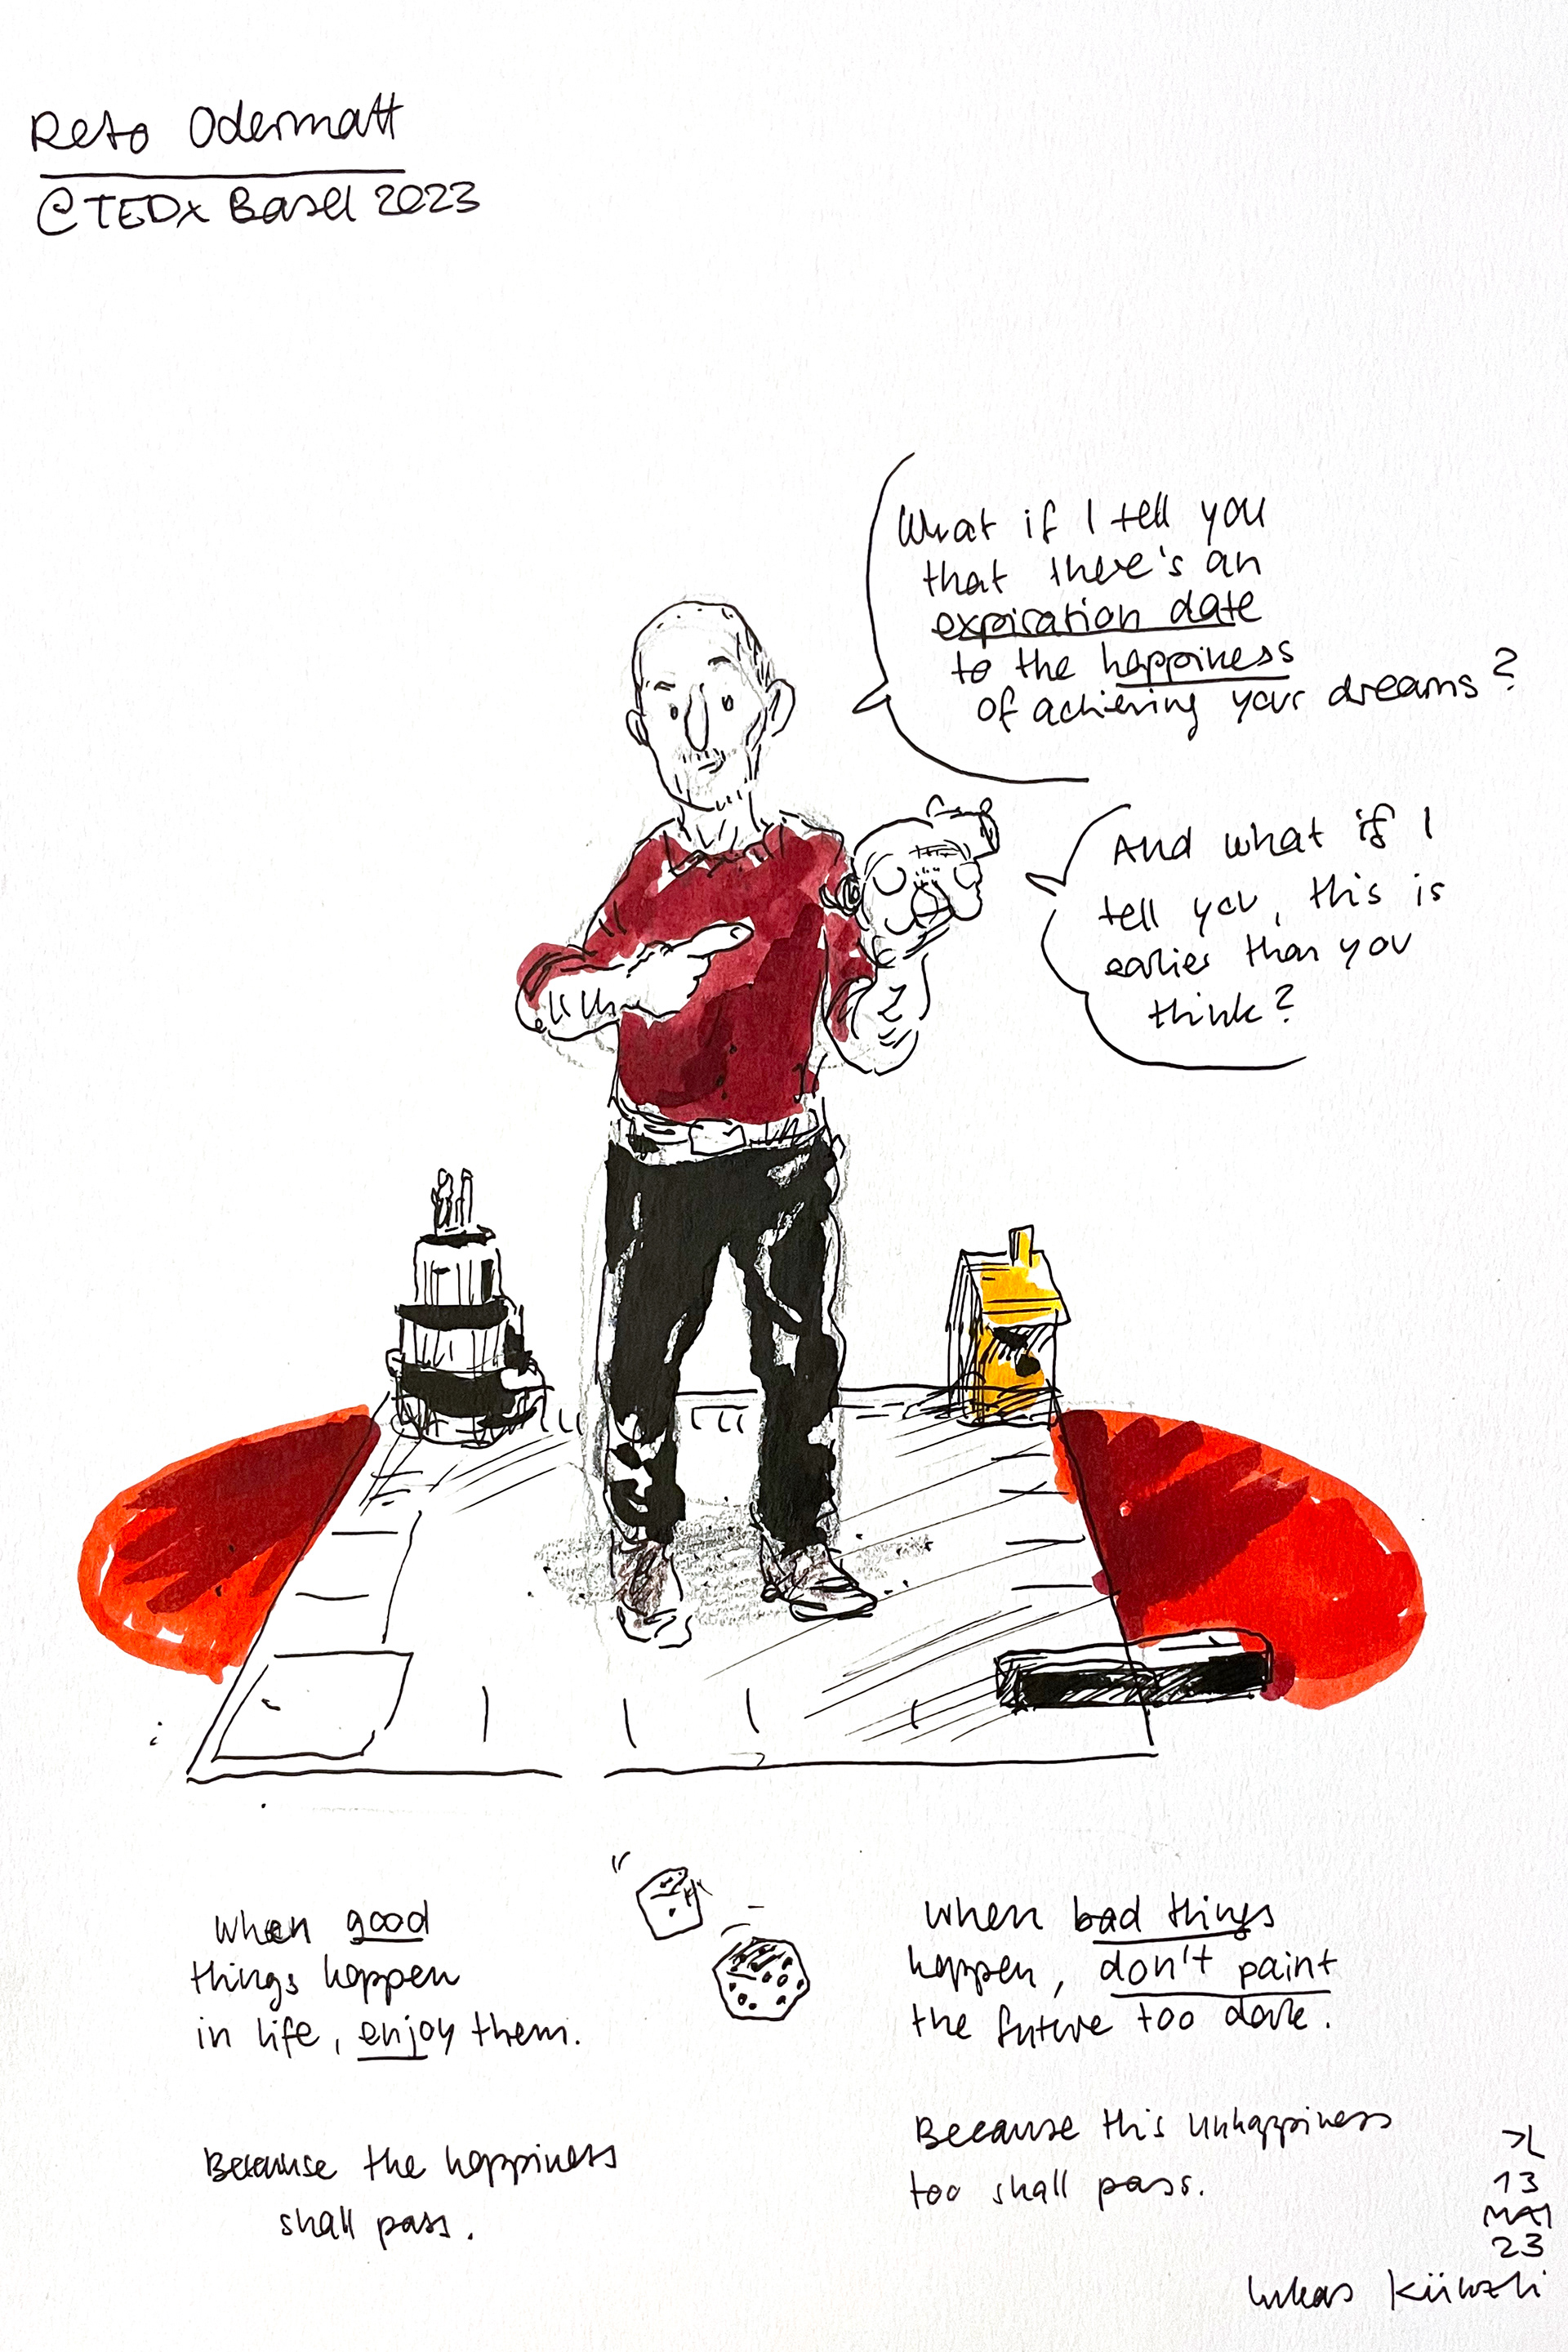 Reto Odermatt
@TEDx Basel 2023
What if I tell you
that there's an
expiration date
to the happiness
of achieving your dreams?
And what if I
tell you, this is
earlier than you
think?
When good
things happen
in life, enjoy them.
Because the happiness
shall pass.
When bad things
happen, don't paint
the future too dark.
Because this unhappiness
too shall pass.
13
MAI
23
Lukas Künzli